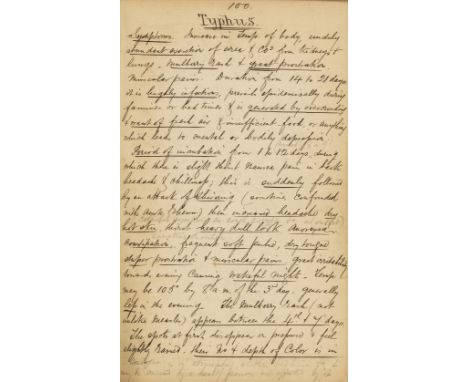 100.
Typhus.
Symptoms. Increase in Temp of body, unduly
abundant excretion of urea & Co² from kidneys &
lungs, Mulberry Rash & great prostration
muscular pain. Duration from 14 to 21 days
It is largely infectious, prevails epidemically during
famines or bad times & is generated by overcrowding
& want of fresh air & insufficient food or anything
which leads to mental or bodily depression
Period of incubation from 1 to 12 days, during
which there is slight thirst nausea pain in back
headache & chilliness; this is suddenly followed
by an attack of shivering (sometimes confounded
with acute Rheum) then increased headache dry
hot skin, thirst heavy dull look Anorexia
constipation, frequent soft pulse, dry tongue
stupor prostration & muscular pain, great
towards evening causing wakeful night. Temp
may be 105° by 8 a.m. of the 3rd day. generally
less in the evening. The Mulberry Rash (not
unlike Measles) appears between the 4th & 7 days.
The spots at first disappear on pressure & feel
slightly raised. their No & depth of Color is in